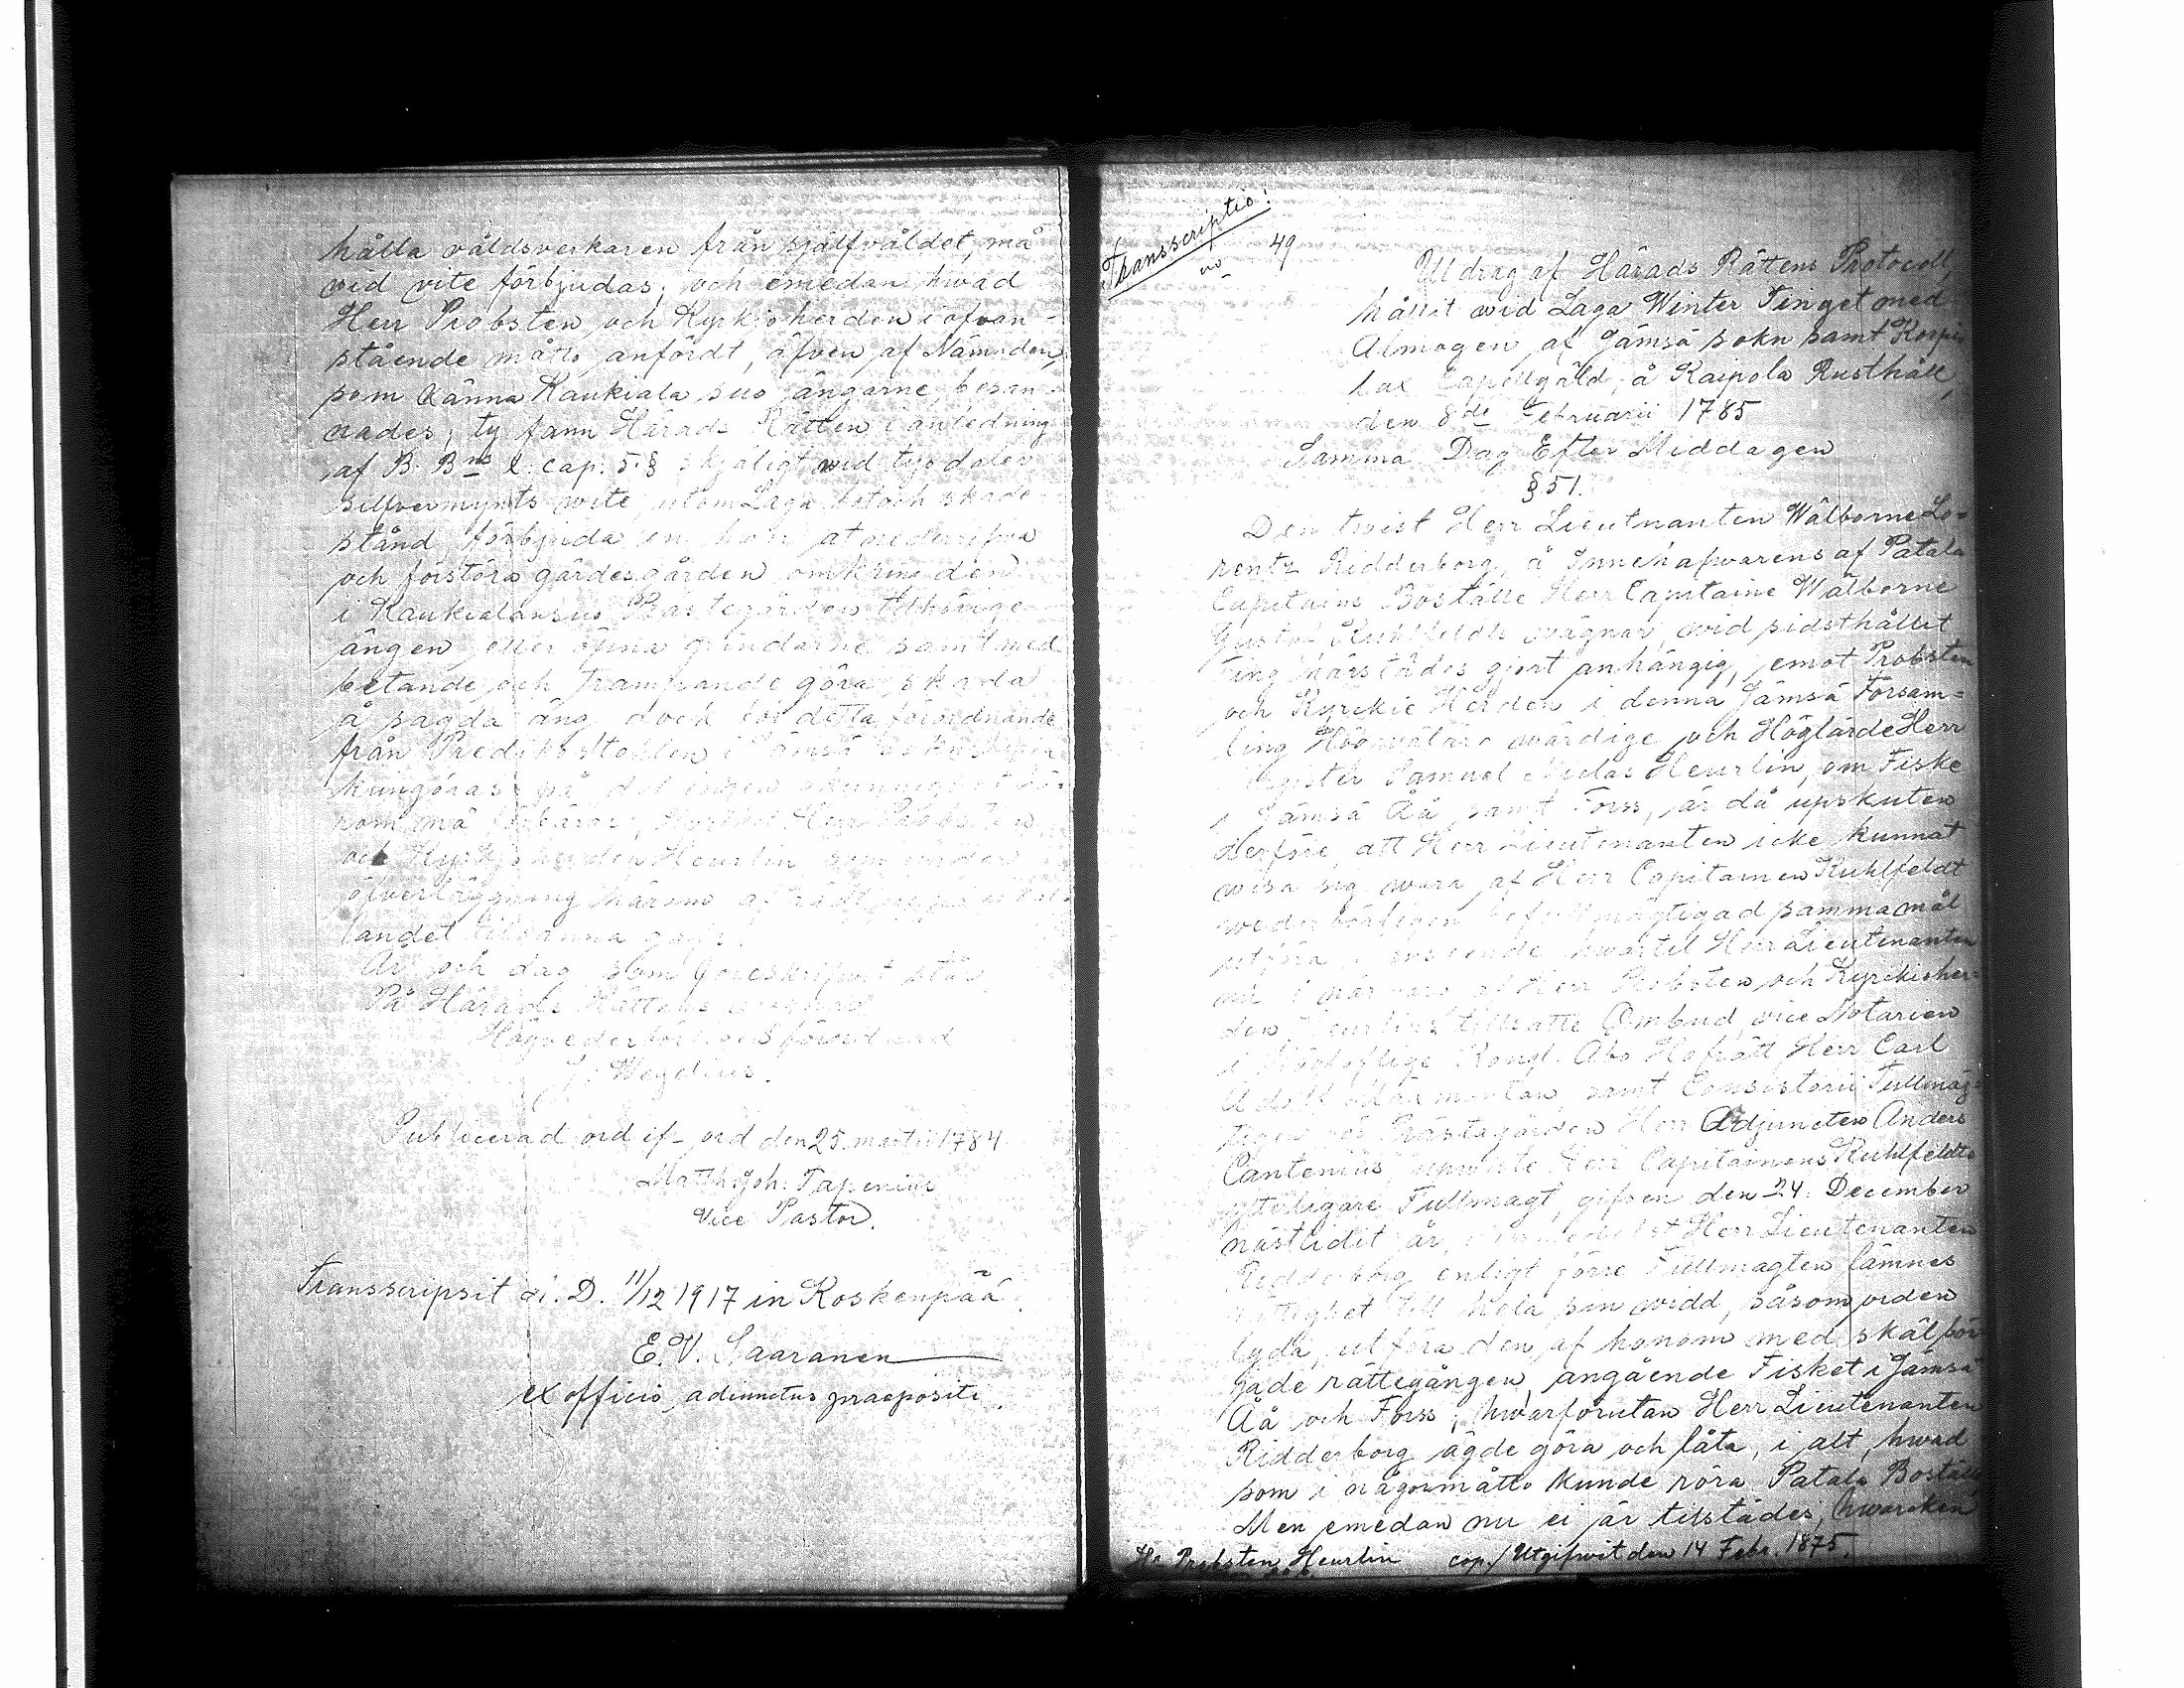 hålla våldsverkaren från sjelfvåldet, må
wid vite förbjudas; och emedan hwad
Herr Probsten och Kyrkioherden i ofvan-
stående måtto anfördt, äfven af Nämnden,
som känna Kaukiala suo ängarne, besan-
nades; ty fann Härads Rätten i anledning
af B. B. cap. 5 § skjäligt wid tyo daler
silfvermynts wite, utom Laga bot och skade-
stånd, förbjuda en hvar at nederrifva
och förstöra gärdesgården omkring den
i Kaukialansuo Prästegården tilhörige
ängen, eller öpna grindarne samt med
betande och trampande göra skada
å sagda äng, och bör detta förordnande
från Predikostolen i Jämsä
kungöras på det ingen okunnighet
må Herr Probsten
och Kyrkjoherden Heurlin
öfverläggning härom af
landet
År och dag som föreskrifvit står.
På Härads Rättens wägnar
förordnad
J. Wegelius.
Publicerad den 25. martii 1784
Matth. Joh. Tapenius
Vice Pastor.
Transscripsit a. D. 11/12 1917 in Koskenpää
E. V. Saaranen
ex officio adiunctus praepositi
Transscriptio!
no 49
Utdrag af Härads Rättens Protocoll
hållit wid Laga Winter Tinget med
Almogen af Jämsä sokn samt Korpi
lax Capellgäld, å Kaipola Rusthåll,
den 8de Februarii 1785
Samma Dag Efter Middagen
§ 51.
Den twist Herr Lieutnanten Wälborne Lo-
rentz Ridderborg, å Innehafwarens af Patala
Capitains Boställe Herr Capitaine Wälborne
Gustaf Ruhlfeldts wägnar, wid sidsthållit
Ting härstädes gjort anhängig, emot Probsten
och Kyrckie Herden i denna Jämsä Försam-
ling Höglärde Herr
Magister Samuel Heurlin, om Fiske
i Jämsä Åå samt Forss, är då upskuten
derföre, att Herr Lieutenanten icke kunnat
wisa sig wara af Herr Capitainen Ruhlfeldt
wederbörligen befullmägtigad samma mål
utföra, i anseende hwartil Herr Lieutenanten
nu i närvaro af Herr Probsten och Kyrckioher-
den Heurlins tillsatte Ombud, vice Notarien
i Högloflige Kongl. Åbo Hofrätt Herr Carl
Adolf samt Consistorii Fullmäg-
tigen för Prästegården Herr Adjuncten Anders
Cantenius, upwiste Herr Capitainens Ruhlfeldts
ytterligare Fullmagt, gifven den 24. December
nästledit år, Herr Lieutenanten
Ridderborg enligt förre Fullmagten lämnes
till hela sin widd, såsom orden
lyda, utföra den af honom med skäl bör-
jade rättegången, angående Fisket i Jämsä
Åå och Forss; hwarförutan Herr Lieutenanten
Ridderborg ägde göra och låta, i alt, hwad
som i någor måtto kunde röra Patala Boställe
Men emedan nu ei är tilstädes, hwarcken
Hr Probsten Heurlin cop./ Utgifwit den 14 Febr. 1875.